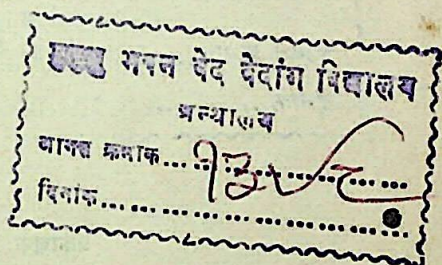 भवन वेद वेदांग विद्यालय
ग्रन्थालय
आगत क्रमांक....................
दिनांक....................